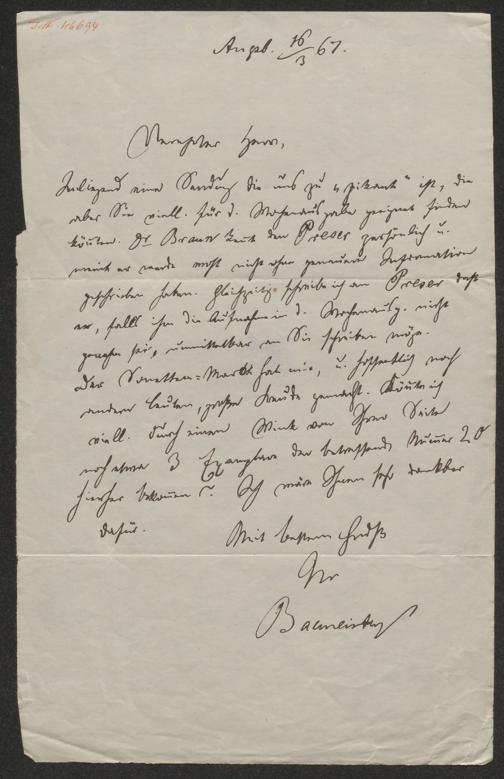 I.N. 46694
Augsb. 16/3 67.
Verehrter Herr,
Inliegend eine Sendung die uns zu "pikant" ist, die
aber Sie viell. für d. Wochenausgabe geeignet finden
könnten. Dr Braun kennt den Preser persönlich u.
meint er werde wohl nicht ohne genauere Information
geschrieben haben. Gleichzeitig schreibe ich an Preser daß
er, falls ihm die Aufnahme in d. Wochenausg. nicht
genehm sei, unmittelbar an Sie schreiben möge.
Der Sonetten-Markt hat mir, u. hoffentlich noch
andern Leuten, großе Freude gemacht. Könnte ich
viell. durch einen Wink von Ihrer Seite
noch etwa 3 Exemplare der betreffenden Nummer
hierher bekommen? Ich wäre Ihnen sehr dankbar
dafür.
Mit bestem Gruß
Ihr
Bacmeister